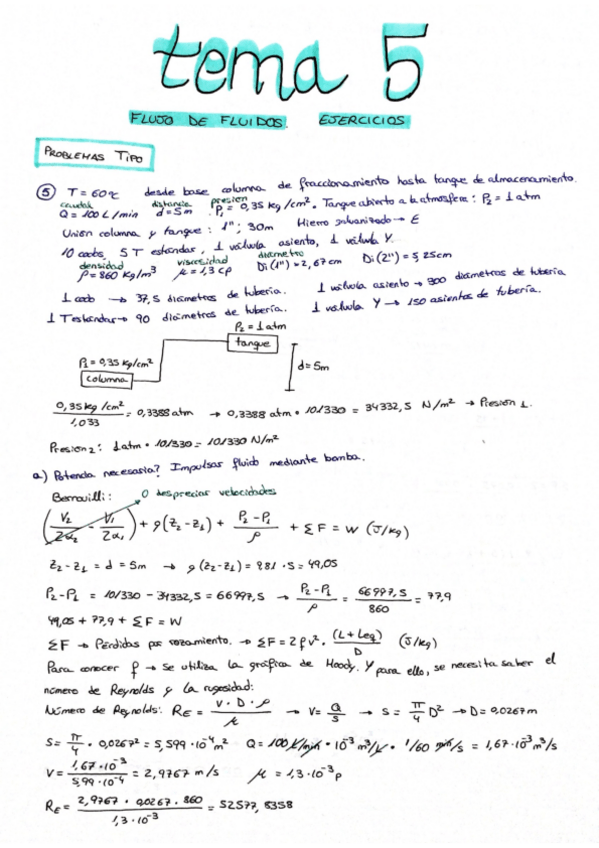 tema 5
FLUJO DE FLUIDOS. EJERCICIOS
PROBLEMAS TIPO
⑤ T = 60ºC desde base columna de fraccionamiento hasta tanque de almacenamiento.
caudal distancia presión
Q = 100 L/min d = 5m P₁ = 0,35 Kg/cm². Tanque abierto a la atmosfera: P₂ = 1 atm
Unión columna y tanque: 1"; 30m Hierro galvanizado → E
10 codos, 5 T estándar, 1 válvula asiento, 1 válvula Y.
densidad viscosidad diámetro
ρ = 860 kg/m³ μ = 1,3 cp Di (1") = 2,67 cm Di (2") = 5,25cm
1 codo → 37,5 diámetros de tubería. 1 válvula asiento → 300 diametros de tubería
1 T estándar → 90 diámetros de tubería. 1 válvula Y → 150 asientos de tubería.
P₂ = 1 atm
tanque
P₁ = 0,35 Kg/cm²
columna
d = 5m
0,35 kg/cm² / 1,033 = 0,3388 atm → 0,3388 atm • 101330 = 34332,5 N/m² → Presion 1.
Presion 2: 1 atm • 101330 = 101330 N/m²
a) Potencia necesaria? Impulsar fluido mediante bomba.
Bernouilli: 0 despreciar velocidades
(V₂/2α₂ - V₁/2α₁) + g(Z₂-Z₁) + P₂-P₁/ρ + ΣF = W (J/kg)
Z₂-Z₁ = d = 5m → g(Z₂-Z₁) = 9,81 · 5 = 49,05
P₂-P₁ = 101330 - 34332,5 = 66997,5 → P₂-P₁/ρ = 66997,5/860 = 77,9
49,05 + 77,9 + ΣF = W
ΣF → Pérdidas por rozamiento. → ΣF = 2fv² · (L+Leq)/D (J/kg)
Para conocer f → se utiliza la gráfica de Moody. Y para ello, se necesita saber el
número de Reynolds y la rugosidad:
Número de Reynolds: RE = V · D · ρ/μ → V = Q/S → S = π/4 D² → D = 0,0267m
S = π/4 · 0,0267² = 5,599 · 10⁻⁴ m² Q = 100 L/min · 10⁻³ m³/L · 1/60 min/s = 1,67·10⁻³ m³/s
V = 1,67·10⁻³/5,99·10⁻⁴ = 2,9767 m/s μ = 1,3·10⁻³ p
RE = 2,9767 · 0,0267 · 860/1,3·10⁻³ = 52577,8358